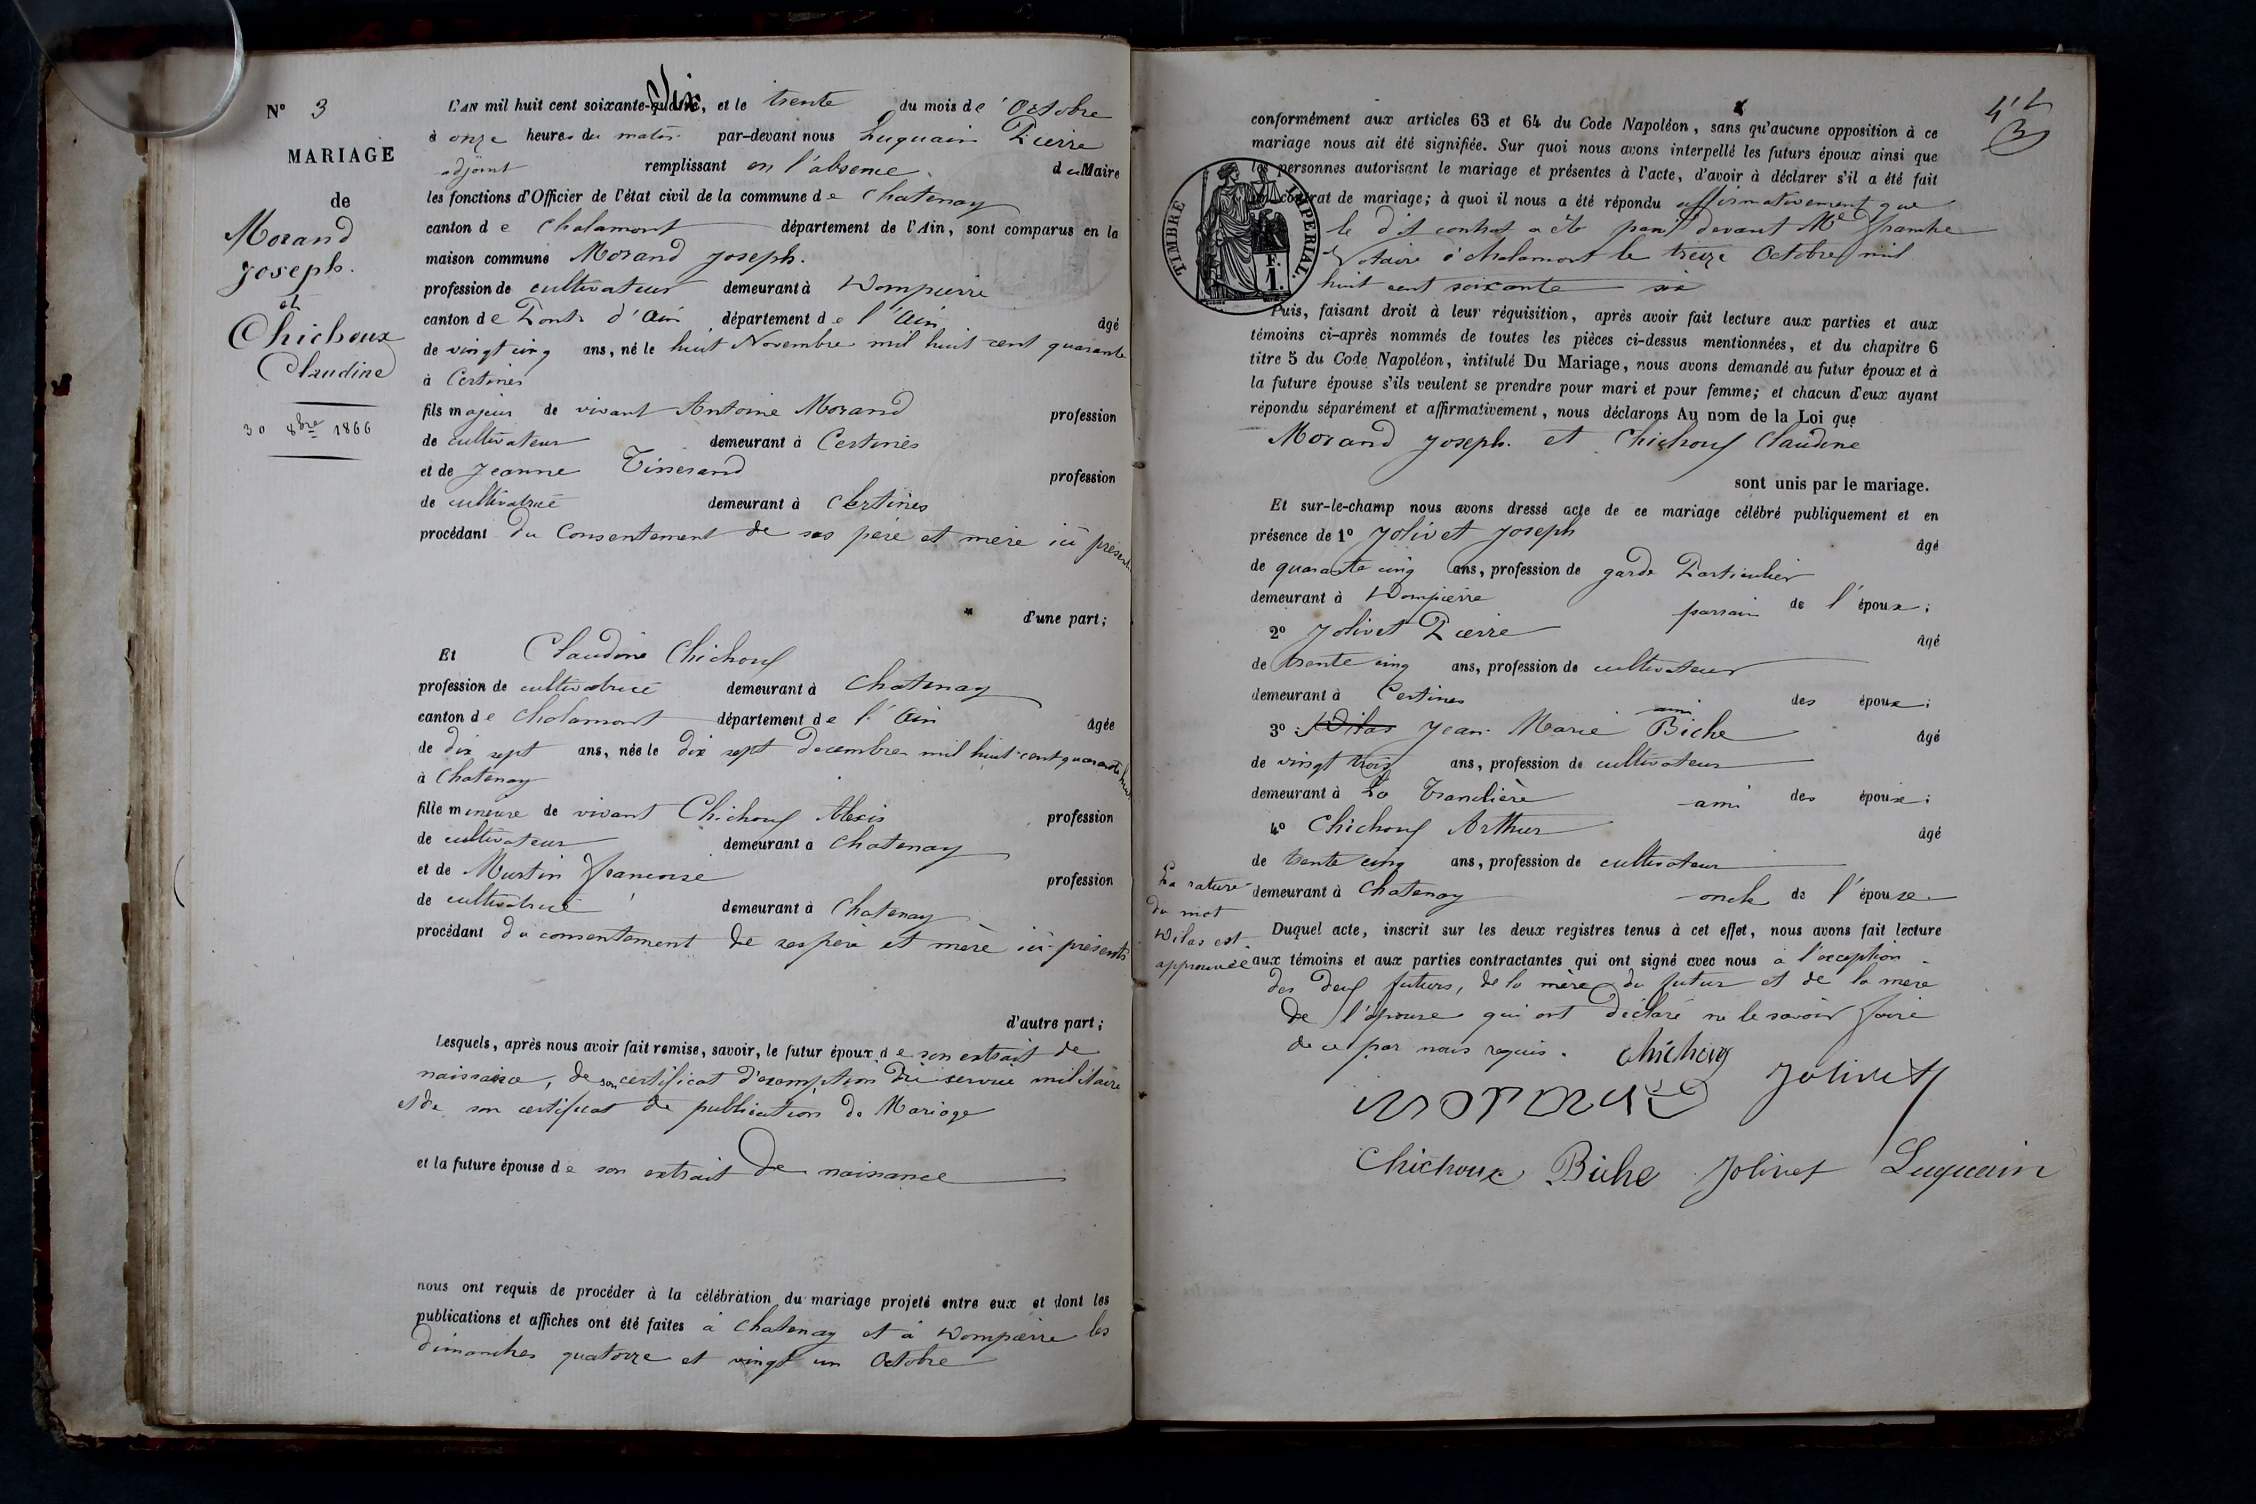 N° 3
MARIAGE
de
Morand
Joseph.
et
Chichoux
Claudine
30 8bre 1866
L'AN mil huit cent soixante-six, et le trente du mois de Octobre
à onze heures du matin par-devant nous Luquain Pierre
adjoint remplissant en l'absence du Maire
les fonctions d'Officier de l'état civil de la commune de Chatenay
canton de Chalamont département de l'Ain, sont comparus en la
maison commune Morand Joseph.
profession de cultivateur demeurant à Dompierre
canton de Pont d'Ain département de l'Ain âgé
de vingt cinq ans, né le huit Novembre mil huit cent quarante
à Certines
fils majeur de vivant Antoine Morand profession
de cultivateur demeurant à Certines
et de Jeanne Tisserand profession
de cultivatrice demeurant à Certines
procédant du Consentement de ses père et mère ici présents
d'une part;
Et Claudine Chichoux
profession de cultivatrice demeurant à Chatenay
canton de Chalamont département de l'Ain âgée
de dix sept ans, née le dix sept decembre mil huit cent quarante huit
à Chatenay
fille mineure de vivant Chichoux Alexis profession
de cultivateur demeurant à Chatenay
et de Murtin Francoise profession
de cultivatrice demeurant à Chatenay
procédant du consentement de ses père et mère ici présents
d'autre part;
Lesquels, après nous avoir fait remise, savoir, le futur époux de son extrait de
naissance, de son certificat d'exemption du service militaire
et de son certificat de publication de Mariage
et la future épouse de son extrait de naissance
nous ont requis de procéder à la célébration du mariage projeté entre eux et dont les
publications et affiches ont été faites à Chatenay et à Dompierre les
dimanches quatorze et vingt un Octobre
conformément aux articles 63 et 64 du Code Napoléon, sans qu'aucune opposition à ce
mariage nous ait été signifiée. Sur quoi nous avons interpellé les futurs époux ainsi que
les personnes autorisant le mariage et présentes à l'acte, d'avoir à déclarer s'il a été fait
contrat de mariage; à quoi il nous a été répondu affirmativement que
le dit contrat a été passé devant Me
Notaire à Chalamont le treize Octobre mil
huit cent soixante six
TIMBRE IMPERIAL.
1 F.
Puis, faisant droit à leur réquisition, après avoir fait lecture aux parties et aux
témoins ci-après nommés de toutes les pièces ci-dessus mentionnées, et du chapitre 6
titre 5 du Code Napoléon, intitulé Du Mariage, nous avons demandé au futur époux et à
la future épouse s'ils veulent se prendre pour mari et pour femme; et chacun d'eux ayant
répondu séparément et affirmativement, nous déclarons Au nom de la Loi que
Morand Joseph. et Chichoux Claudine
sont unis par le mariage.
Et sur-le-champ nous avons dressé acte de ce mariage célébré publiquement et en
présence de 1° Jolivet Joseph âgé
de quarante cinq ans, profession de garde Particulier
demeurant à Dompierre parrain de l'époux;
2° Jolivet Pierre âgé
de trente cinq ans, profession de cultivateur
demeurant à Certines ami des époux;
3° Wilas Jean Marie Biche âgé
de vingt trois ans, profession de cultivateur
demeurant à La Tranclière ami des époux;
4° Chichoux Arthur âgé
de trente cinq ans, profession de cultivateur
demeurant à Chatenay oncle de l'épouse
La rature
du mot
Wilas est
approuvée
Duquel acte, inscrit sur les deux registres tenus à cet effet, nous avons fait lecture
aux témoins et aux parties contractantes qui ont signé avec nous à l'exception
des deux futurs, de la mère du futur et de la mère
de l'épouse qui ont déclaré ne le savoir faire
de ce par nous requis.
Chichoux Jolivet
morand
Chichoux Biche Jolivet Luquain